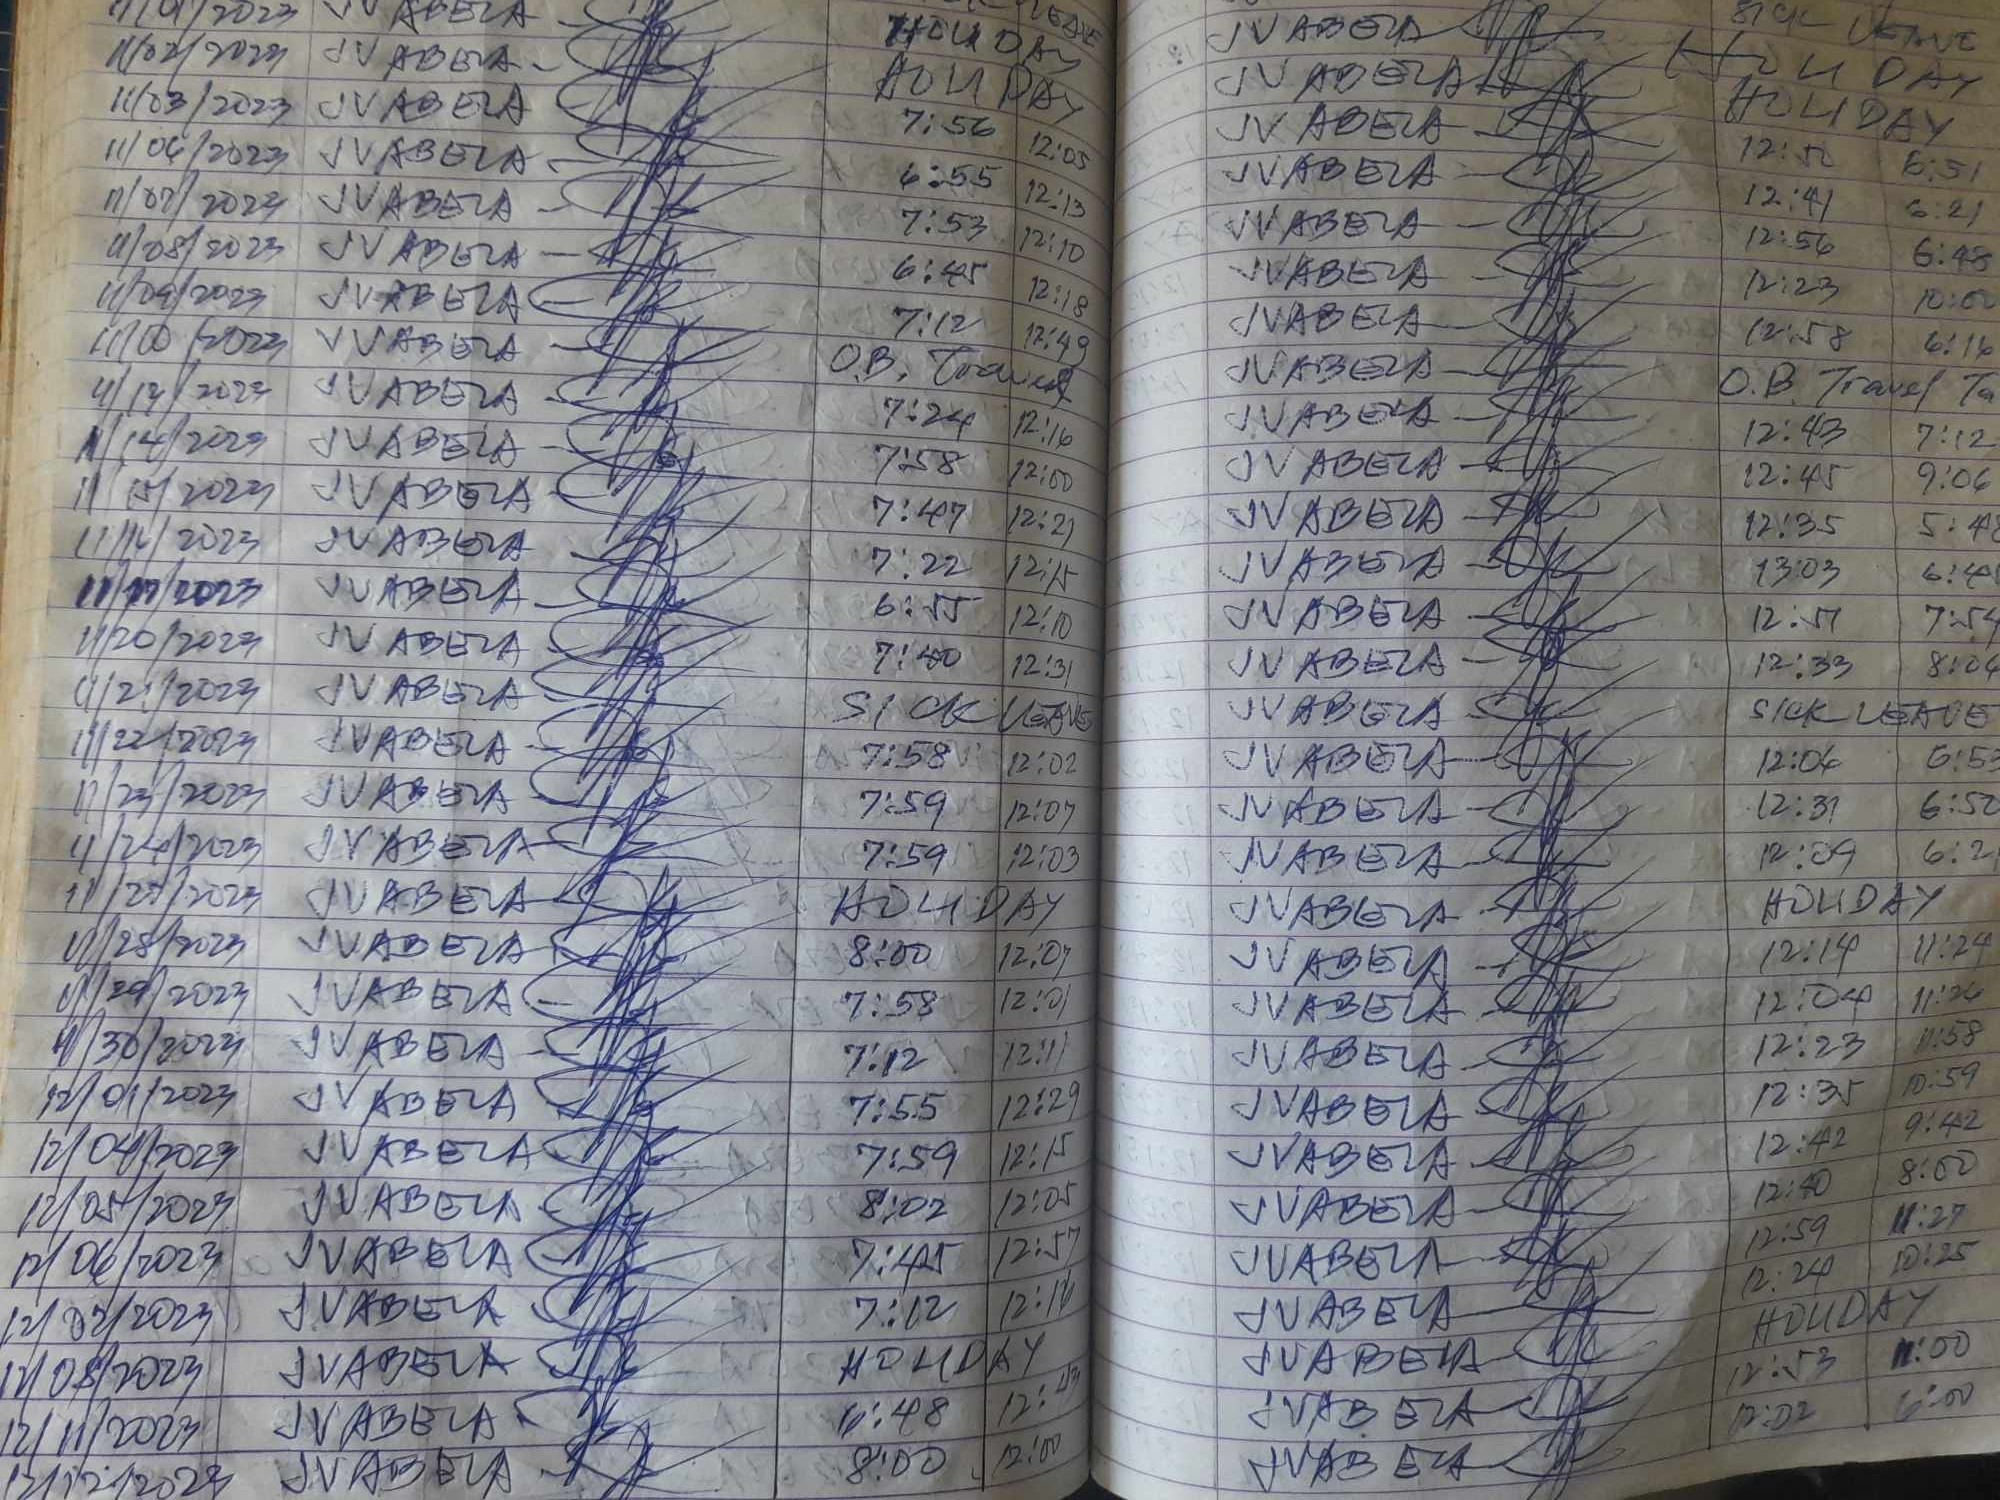 11/01/2023 JVABELA HOLIDAY
11/02/2023 JVABELA HOLIDAY
11/03/2023 JVABELA 7:56 12:05
11/06/2023 JVABELA 6:55 12:13
11/07/2023 JVABELA 7:53 12:10
11/08/2023 JVABELA 6:45 12:18
11/09/2023 JVABELA 7:12 12:49
JVABELA O.B. Travel
11/13/2023 JVABELA 7:24 12:16
11/14/2023 JVABELA 7:58 12:00
11/15/2023 JVABELA 7:47 12:21
11/16/2023 JVABELA 7:22 12:15
11/17/2023 JVABELA 6:55 12:10
11/20/2023 JVABELA 7:40 12:31
11/21/2023 JVABELA SICK LEAVE
11/22/2023 JVABELA 7:58 12:02
11/23/2023 JVABELA 7:59 12:07
11/24/2023 JVABELA 7:59 12:03
11/27/2023 JVABELA HOLIDAY
11/28/2023 JVABELA 8:00 12:07
11/29/2023 JVABELA 7:58 12:01
11/30/2023 JVABELA 7:12 12:11
12/01/2023 JVABELA 7:55 12:29
12/04/2023 JVABELA 7:59 12:15
12/05/2023 JVABELA 8:02 12:05
12/06/2023 JVABELA 7:45 12:57
12/07/2023 JVABELA 7:12
12/08/2023 JVABELA HOLIDAY
12/11/2023 JVABELA 6:48
12/12/2023 JVABELA 8:00 12:00
JVABELA SICK LEAVE
JVABELA HOLIDAY
JVABELA HOLIDAY
JVABELA 12:50 6:51
JVABELA 12:41 6:21
JVABELA 12:56 6:48
JVABELA 12:23 10:00
JVABELA 12:58 6:16
JVABELA O.B. Travel
JVABELA 12:43 7:12
JVABELA 12:45 9:06
JVABELA 12:35 5:48
JVABELA 13:03
JVABELA 12:51 7:54
JVABELA 12:33 8:04
JVABELA SICK LEAVE
JVABELA 12:06 6:53
JVABELA 12:31 6:50
JVABELA 12:09
JVABELA HOLIDAY
JVABELA 12:14 11:24
JVABELA 12:04 11:26
JVABELA 12:23 11:58
JVABELA 12:35 10:59
JVABELA 12:42 9:42
JVABELA 12:40 8:00
JVABELA 12:59 11:27
JVABELA 12:24 10:25
JVABELA HOLIDAY
JVABELA 12:53 11:00
JVABELA 12:02 6:00